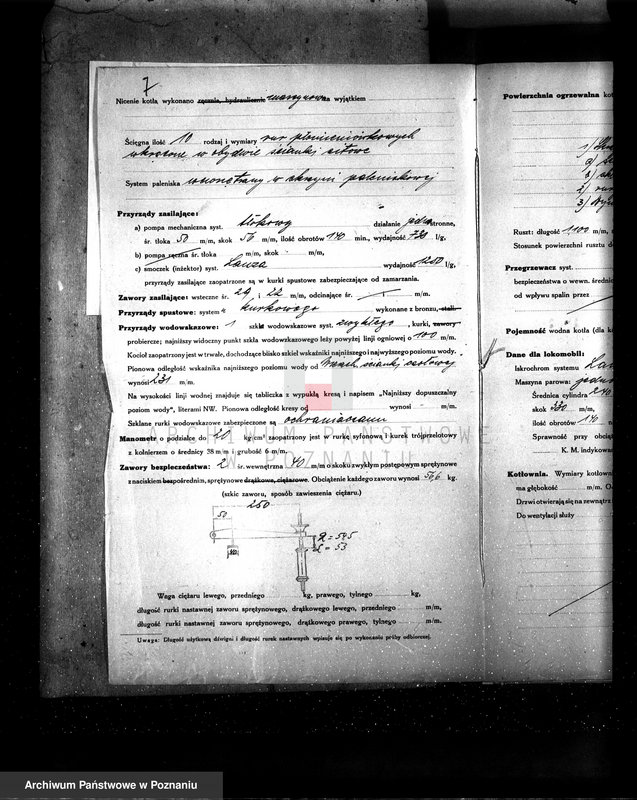 7
Nicenie kotła wykonano ręcznie, hydraulicznie maszynowo za wyjątkiem
Ściągna ilość 10 rodzaj i wymiary rur płomieniówkowych
wkręcone w obydwie ścianki sitowe
System paleniska wewnętrzny w skrzyni paleniskowej
Przyrządy zasilające:
a) pompa mechaniczna syst. tłokowy działanie jednostronne,
śr. tłoka 50 m/m, skok 56 m/m, ilość obrotów 140 min., wydajność 730 l/g,
b) pompa ręczna śr. tłoka m/m, skok - m/m,
c) smoczek (inżektor) syst. Lanza wydajność 1200 l/g,
przyrządy zasilające zaopatrzone są w kurki spustowe zabezpieczające od zamarzania.
Zawory zasilające: wsteczne śr. 29 i 22 m/m, odcinające śr. m/m.
Przyrządy spustowe: system kurkowego wykonane z bronzu, stali.
Przyrządy wodowskazowe: 1 szkł wodowskazowe syst. zwykłego, kurki, zawory
probiercze; najniższy widoczny punkt szkła wodowskazowego leży powyżej linji ogniowej o 100 m/m.
Kocioł zaopatrzony jest w trwałe, dochodzące blisko szkieł wskaźniki najniższego i najwyższego poziomu wody.
Pionowa odległość wskaźnika najniższego poziomu wody, od ścianki
wynosi 231 m/m.
Na wysokości linji wodnej znajduje się tabliczka z wypukłą kresą i napisem „Najniższy dopuszczalny
poziom wody", literami NW. Pionowa odległość kresy od wynosi - m/m.
Szklane rurki wodowskazowe zabezpieczone są ochraniaczami
Manometr o podziałce do 20 kg/cm² zaopatrzony jest w rurkę syfonową i kurek trójprzelotowy
z kołnierzem o średnicy 38 m/m i grubość 6 m/m.
Zawory bezpieczeństwa: 2 śr. wewnętrzna 40 m/m o skoku zwykłym postępowym sprężynowe
z naciskiem bezpośrednim, sprężynowe drążkowe, ciężarowe. Obciążenie każdego zaworu wynosi 57,6 kg.
(szkic zaworu, sposób zawieszenia ciężaru.)
250
50
L = 53
Waga ciężaru lewego, przedniego kg, prawego, tylnego kg,
długość rurki nastawnej zaworu sprężynowego, drążkowego lewego, przedniego m/m,
długość rurki nastawnej zaworu sprężynowego, drążkowego prawego, tylnego m/m.
Uwaga: Długość użytkową dźwigni i długość rurek nastawnych wpisuje się po wykonaniu próby odbiorczej.
Powierzchnia ogrzewalna kot
1)
a)
b)
2)
3)
Ruszt: długość 1100 m/m,
Stosunek powierzchni rusztu do
Przegrzewacz syst.
bezpieczeństwa o wewn. średni
od wpływu spalin przez
Pojemność wodna kotła (dla k
Dane dla lokomobil:
Iskrochron systemu Lan
Maszyna parowa:
Średnica cylindra 240
skok 330 m/m,
ilość obrotów 140
Sprawność przy obcią
K. M. indykowan
Kotłownia. Wymiary kotłowni
ma głębokość m/m. O
Drzwi otwierają się na zewnątrz
Do wentylacji służy
ARCHIWUM PAŃSTWOWE
W POZNANIU
Archiwum Państwowe w Poznaniu